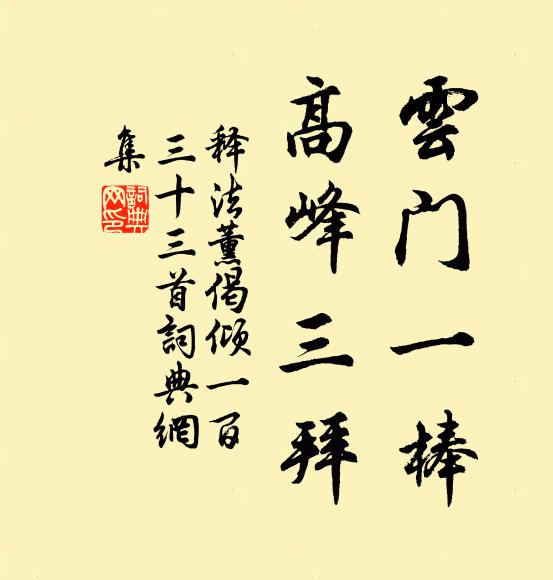 雲门一棒
高峰三拜
释法薰偈颂一百
三十三首詞典網
集
詞典网印